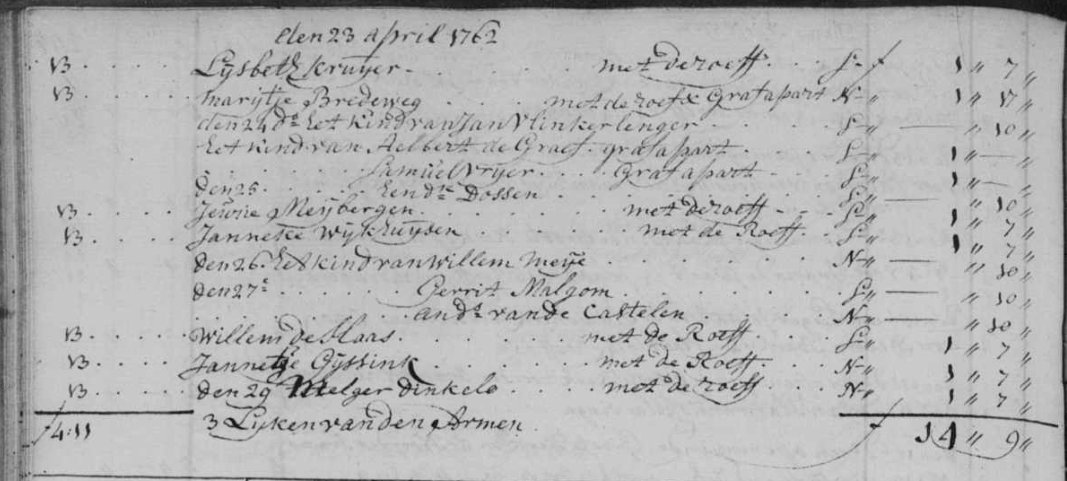 den 23 april 1762
13 Lijsbeth Kruijer met de roeff L f 1 " 7 "
13 marijtje Bredeweg met de roef & Graf apart N " 1 " 17 "
den 24 do het kind van Jan Vlinkerlenger L " — " 10 "
het kind van Aelbert de Graef grafapart L " 1 " — "
Samuel Vrijer Graf apart L " 1 " — "
den 25 hend:k Dossen L " — " 10 "
13 Meijbergen met de roeff L " 1 " 7 "
13 Janneke Wijkhuijsen met de Roeff L " 1 " 7 "
den 26 het kind van willem meije N " — " 10 "
den 27 Gerrit Malgom L " — " 10 "
And:s van de Castelen N " — " 10 "
13 Willem de Haas met de Roeff L " 1 " 7 "
13 Jannetje Gijssink met de Roeff N " 1 " 7 "
13 den 29 Melger Dinkelo met de roeff N " 1 " 7 "
f 4:11 3 Lijken van den Armen f 14 " 9 "